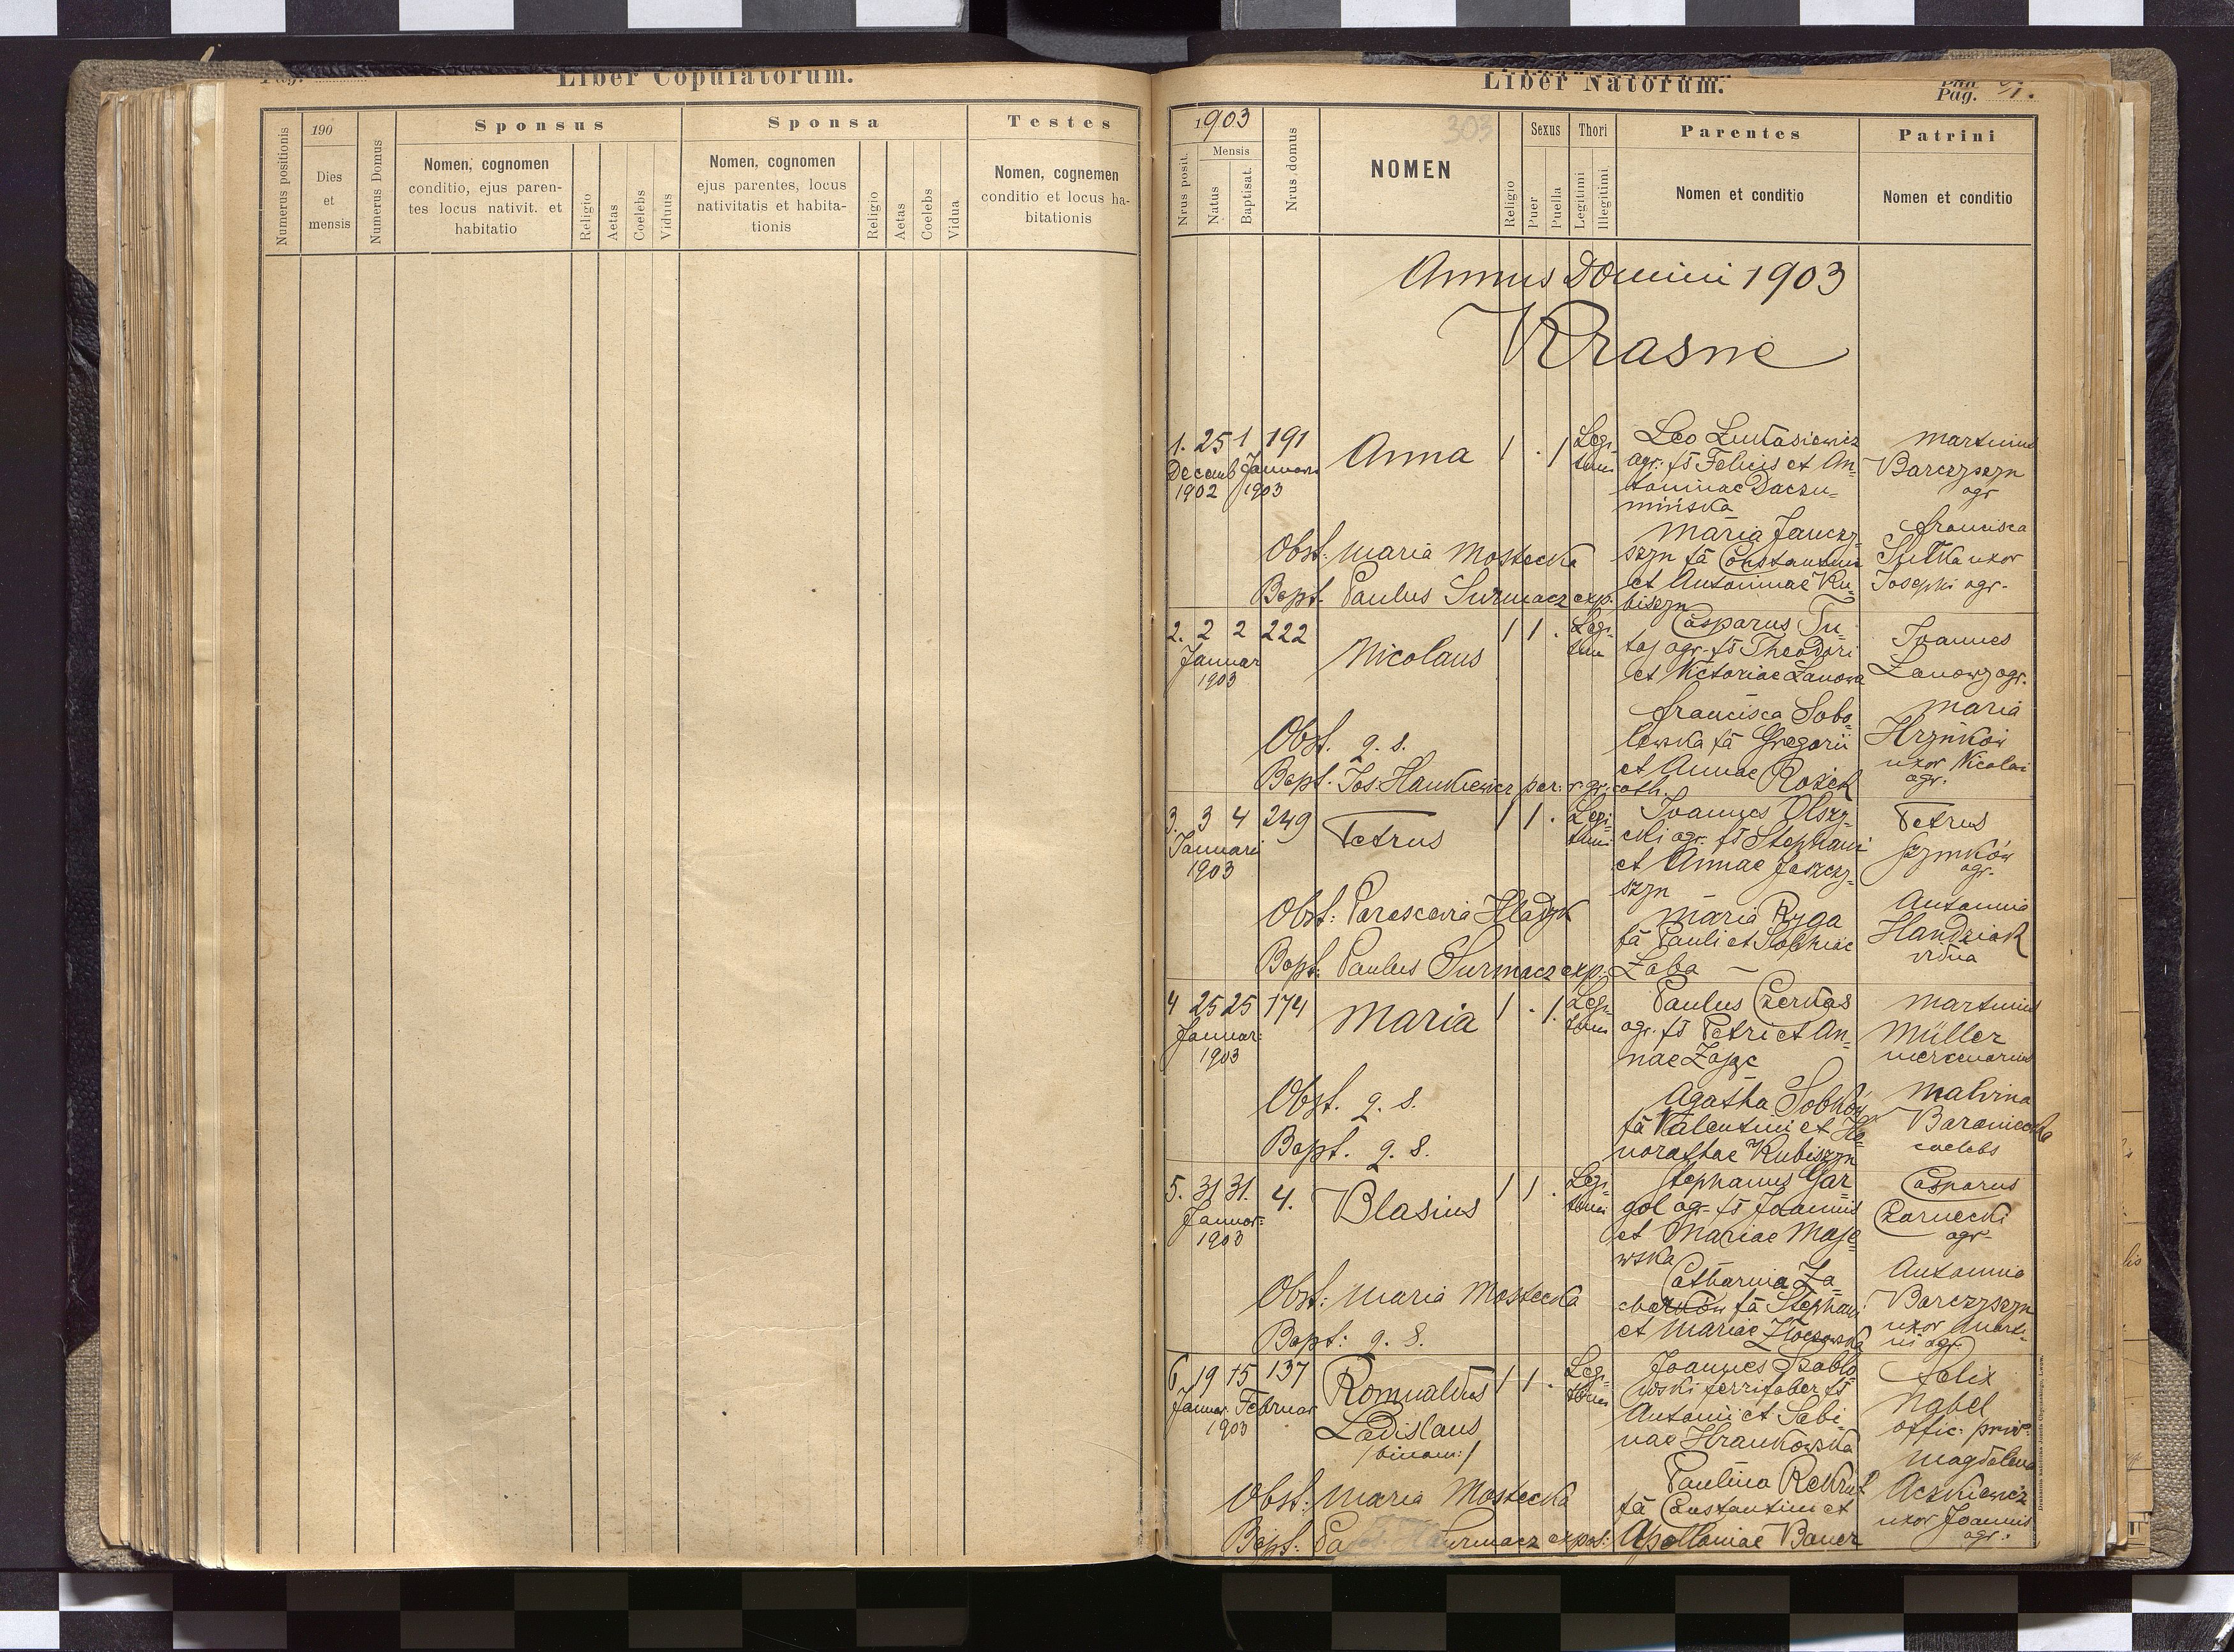 Liber Copulatorum.
Numerus positionis
190
Dies
et
mensis
Numerus Domus
Sponsus
Nomen, cognomen
conditio, ejus paren-
tes locus nativit. et
habitatio
Religio
Aetas
Coelebs
Viduus
Sponsa
Nomen, cognomen
ejus parentes, locus
nativitatis et habita-
tionis
Religio
Aetas
Coelebs
Vidua
Testes
Nomen, cognemen
conditio et locus ha-
bitationis
Liber Natorum.
Pag.
1903
303
Nrus posit.
Mensis
Natus
Baptisat.
Nrus domus
NOMEN
Religio
Sexus
Puer
Puella
Thori
Legitimi
Illegitimi
Parentes
Nomen et conditio
Patrini
Nomen et conditio
Annus Domini 1903
Krasne
1. 25 1 191
Decemb Januarii
1902 1903
Anna
1 . 1
Legi-
timi
Leo
agr. fs Felicis et An-
toninae Daczu-
mińska
Maria Janczy-
szyn fa Constantini
et Antoninae Ku-
biszyn
Martinus
Barczyszyn
agr
Francisca
uxor
Josephi agr.
Obst: Maria Mostecka
Bapt. Paulus Surmacz exp.
2. 2 2 222
Januar
1903
Nicolaus
1 1 .
Legi-
timi
Casparus Tu-
taj agr. fs Theodori
et Victoriae Lanowa
Francisca Sobo-
lewska fa Gregorii
et Annae Rożek
Joannes
Lanowy agr.
Maria
Hryńków
uxor Nicolai
agr.
Obst. q. s.
Bapt. Jos. Hankiewicz par. r. gr. cath.
3. 3 4 249
Januarii
1903
Petrus
1 1 .
Legi-
timi
Joannes Olszy-
cki agr. fs Stephani
et Annae Jaszczy-
szyn
Maria Ryga
fa Pauli et Sophiae
Żaba
Petrus
Szymków
agr.
Antonina
Handziak
vidua
Obst: Parascevia Hladyk
Bapt: Paulus Surmacz exp.
4 25 25 174
Januar:
1903
Maria
1 . 1.
Legi-
timi
Paulus Czerkas
agr. fs Petri et An-
nae Zając
Agatha Sobków
fa Valentini et Ho-
norathae Kubiszyn
Martinus
Müller
mercenarius
Malvina
Baraniecka
caelebs
Obst. q. s.
Bapt. q. s.
5. 31 31. 4.
Januar:
1903
Blasius
1 1 .
Legi-
timi
Stephanus Gar-
gol agr. fs Joannis
et Mariae Maje-
wska
Catharina Za-
fa Stephani
et Mariae Złoczowska
Casparus
Czarnecki
agr.
Antonina
Barczyszyn
uxor Marti-
ni agr.
Obst: Maria Mostecka
Bapt: q. s.
6. 19 15 137
Januar. Februar
1903
Romualdus
Ladislaus
/binom:/
1 1 .
Legi-
timi
Joannes Szablo-
wski ferrifaber fs
Antonii et Sabi-
nae Hrankowska
Paulina Rekrut
fa Constantini et
Apolloniae Bauer
Felix
Nabel
offic: priv:
Magdalena
Aczkiewicz
uxor Joannis
agr.
Obst: Maria Mostecka
Bapt: Surmacz expos: